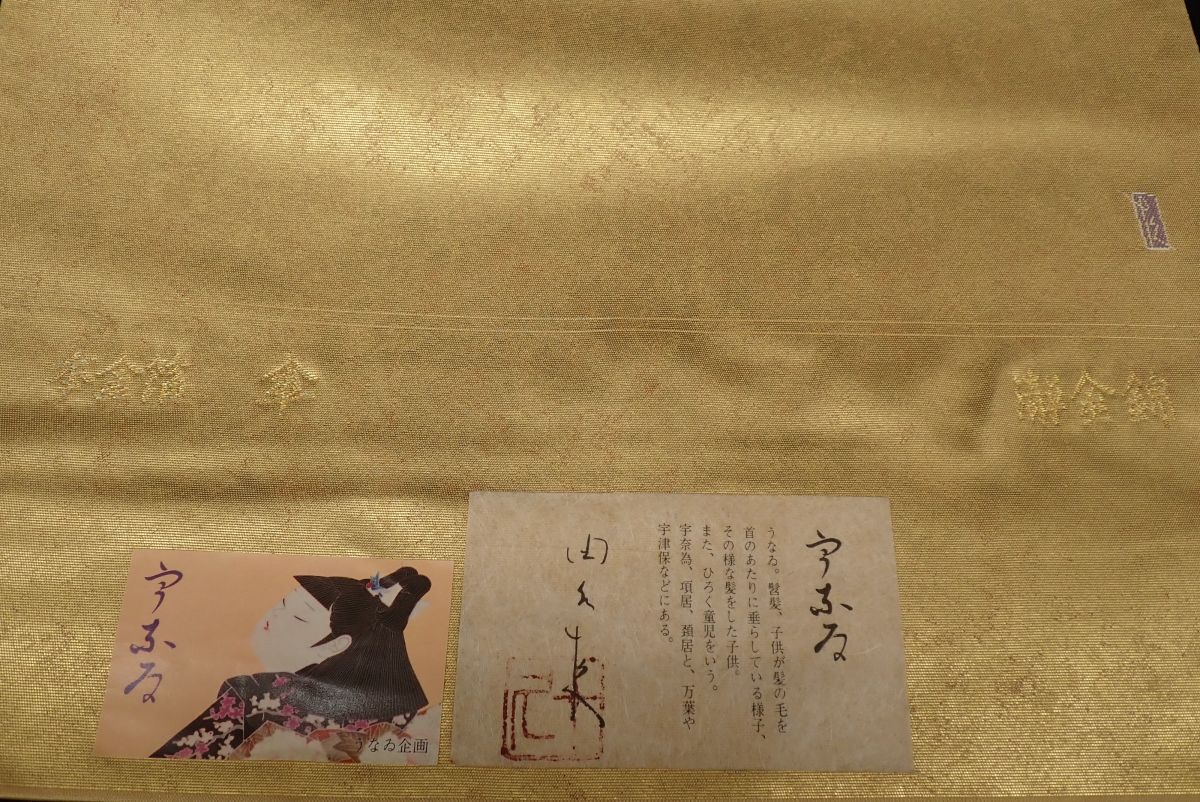 金箔
宇奈為
うなゐ企画
宇奈為
うなゐ。髫髪、子供が髪の毛を
首のあたりに垂らしている様子、
その様な髪をした子供。
また、ひろく童児をいう。
宇奈為、項居、頚居と、万葉や
宇津保などにある。
由久来